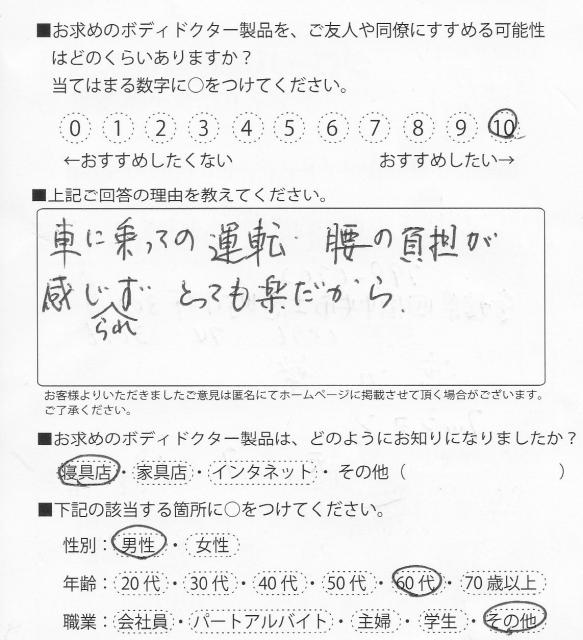 ■お求めのボディドクター製品を、ご友人や同僚にすすめる可能性
はどのくらいありますか？
当てはまる数字に○をつけてください。
0 1 2 3 4 5 6 7 8 9 10
←おすすめしたくない おすすめしたい→
■上記ご回答の理由を教えてください。
車に乗っての運転 腰の負担が
感じず とっても楽だから.
られ
お客様よりいただきましたご意見は匿名にてホームページに掲載させて頂く場合がございます。
ご了承ください。
■お求めのボディドクター製品は、どのようにお知りになりましたか？
寝具店・家具店・インタネット・その他（ ）
■下記の該当する箇所に○をつけてください。
性別：男性・女性
年齢：20代・30代・40代・50代・60代・70歳以上
職業：会社員・パートアルバイト・主婦・学生・その他